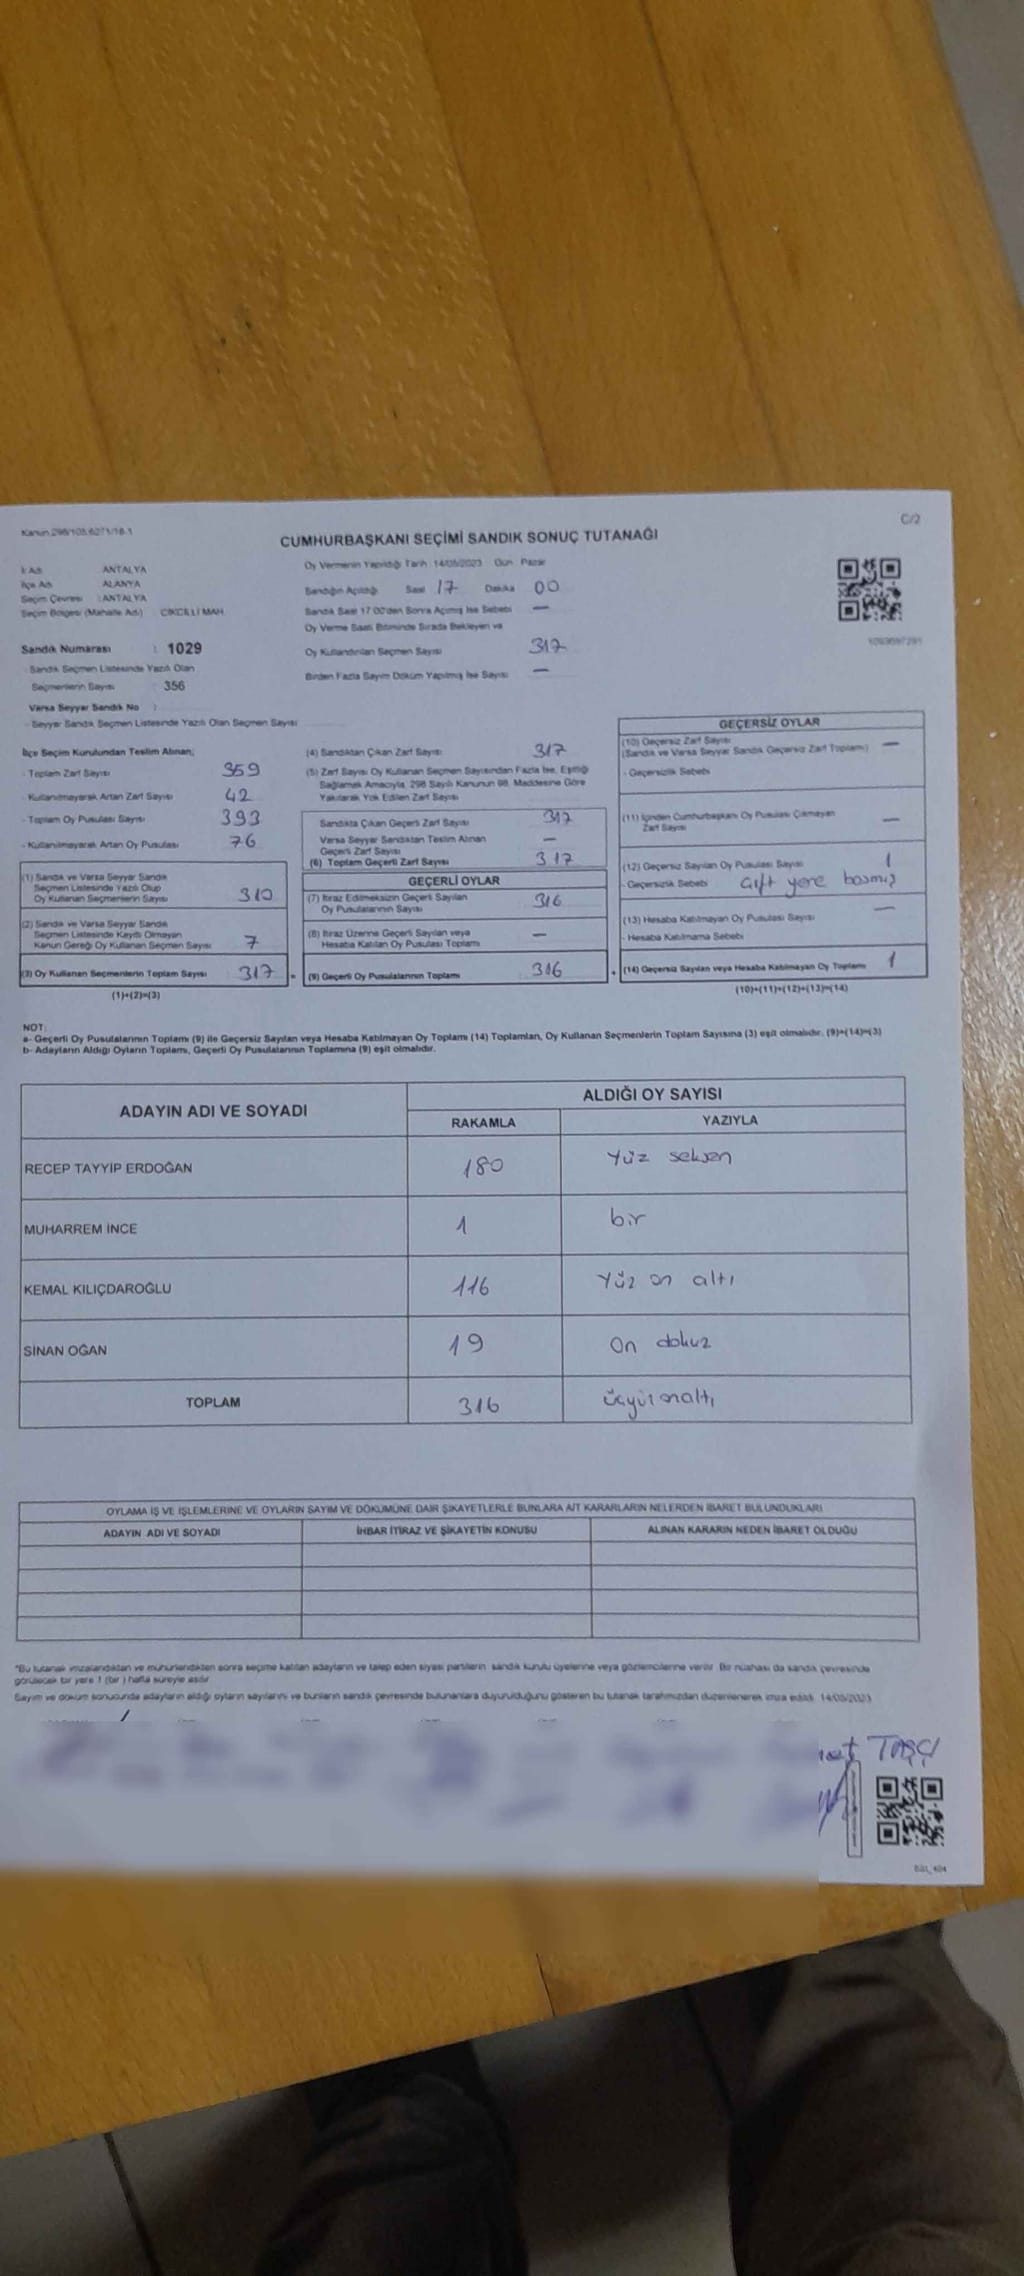 Kanun:298/105,6271/18-1
C/2
CUMHURBAŞKANI SEÇİMİ SANDIK SONUÇ TUTANAĞI
İl Adı : ANTALYA
İlçe Adı : ALANYA
Seçim Çevresi : ANTALYA
Seçim Bölgesi (Mahalle Adı) : CİKCİLLİ MAH.
Sandık Numarası : 1029
- Sandık Seçmen Listesinde Yazılı Olan
Seçmenlerin Sayısı : 356
Varsa Seyyar Sandık No :
- Seyyar Sandık Seçmen Listesinde Yazılı Olan Seçmen Sayısı
Oy Vermenin Yapıldığı Tarih : 14/05/2023 Gün : Pazar
Sandığın Açıldığı Saat 17 Dakika 00
Sandık Saat 17:00'den Sonra Açılmış İse Sebebi —
Oy Verme Saati Bitiminde Sırada Bekleyen ve
Oy Kullandırılan Seçmen Sayısı 317
Birden Fazla Sayım Döküm Yapılmış İse Sayısı —
İlçe Seçim Kurulundan Teslim Alınan;
- Toplam Zarf Sayısı 359
- Kullanılmayarak Artan Zarf Sayısı 42
- Toplam Oy Pusulası Sayısı 393
- Kullanılmayarak Artan Oy Pusulası 76
(1) Sandık ve Varsa Seyyar Sandık
Seçmen Listesinde Yazılı Olup
Oy Kullanan Seçmenlerin Sayısı 310
(2) Sandık ve Varsa Seyyar Sandık
Seçmen Listesinde Kayıtlı Olmayan
Kanun Gereği Oy Kullanan Seçmen Sayısı 7
(3) Oy Kullanan Seçmenlerin Toplam Sayısı 317
(1)+(2)=(3)
(4) Sandıktan Çıkan Zarf Sayısı 317
(5) Zarf Sayısı Oy Kullanan Seçmen Sayısından Fazla İse, Eşitliği
Sağlamak Amacıyla, 298 Sayılı Kanunun 98. Maddesine Göre
Yakılarak Yok Edilen Zarf Sayısı
Sandıkta Çıkan Geçerli Zarf Sayısı 317
Varsa Seyyar Sandıktan Teslim Alınan
Geçerli Zarf Sayısı —
(6) Toplam Geçerli Zarf Sayısı 317
GEÇERLİ OYLAR
(7) İtiraz Edilmeksizin Geçerli Sayılan
Oy Pusulalarının Sayısı 316
(8) İtiraz Üzerine Geçerli Sayılan veya
Hesaba Katılan Oy Pusulası Toplamı —
= (9) Geçerli Oy Pusulalarının Toplamı 316
GEÇERSİZ OYLAR
(10) Geçersiz Zarf Sayısı —
(Sandık ve Varsa Seyyar Sandık Geçersiz Zarf Toplamı)
- Geçersizlik Sebebi
(11) İçinden Cumhurbaşkanı Oy Pusulası Çıkmayan
Zarf Sayısı —
(12) Geçersiz Sayılan Oy Pusulası Sayısı 1
- Geçersizlik Sebebi çift yere basmış
(13) Hesaba Katılmayan Oy Pusulası Sayısı —
- Hesaba Katılmama Sebebi
+ (14) Geçersiz Sayılan veya Hesaba Katılmayan Oy Toplamı 1
(10)+(11)+(12)+(13)=(14)
NOT:
a- Geçerli Oy Pusulalarının Toplamı (9) ile Geçersiz Sayılan veya Hesaba Katılmayan Oy Toplamı (14) Toplamları, Oy Kullanan Seçmenlerin Toplam Sayısına (3) eşit olmalıdır. (9)+(14)=(3)
b- Adayların Aldığı Oyların Toplamı, Geçerli Oy Pusulalarının Toplamına (9) eşit olmalıdır.
ADAYIN ADI VE SOYADI
ALDIĞI OY SAYISI
RAKAMLA YAZIYLA
RECEP TAYYİP ERDOĞAN 180 Yüz seksen
MUHARREM İNCE 1 bir
KEMAL KILIÇDAROĞLU 116 Yüz on altı
SİNAN OĞAN 19 On dokuz
TOPLAM 316 üçyüzonaltı
OYLAMA İŞ VE İŞLEMLERİNE VE OYLARIN SAYIM VE DÖKÜMÜNE DAİR ŞİKAYETLERLE BUNLARA AİT KARARLARIN NELERDEN İBARET BULUNDUKLARI
ADAYIN ADI VE SOYADI İHBAR İTİRAZ VE ŞİKAYETİN KONUSU ALINAN KARARIN NEDEN İBARET OLDUĞU
*Bu tutanak imzalandıktan ve mühürlendikten sonra seçime katılan adayların ve talep eden siyasi partilerin sandık kurulu üyelerine veya gözlemcilerine verilir. Bir nüshası da sandık çevresinde
görülecek bir yere 1 (bir) hafta süreyle asılır.
Sayım ve döküm sonucunda adayların aldığı oyların sayılarını ve bunların sandık çevresinde bulunanlara duyurulduğunu gösteren bu tutanak tarafımızdan düzenlenerek imza edildi. 14/05/2023
TAŞÇI